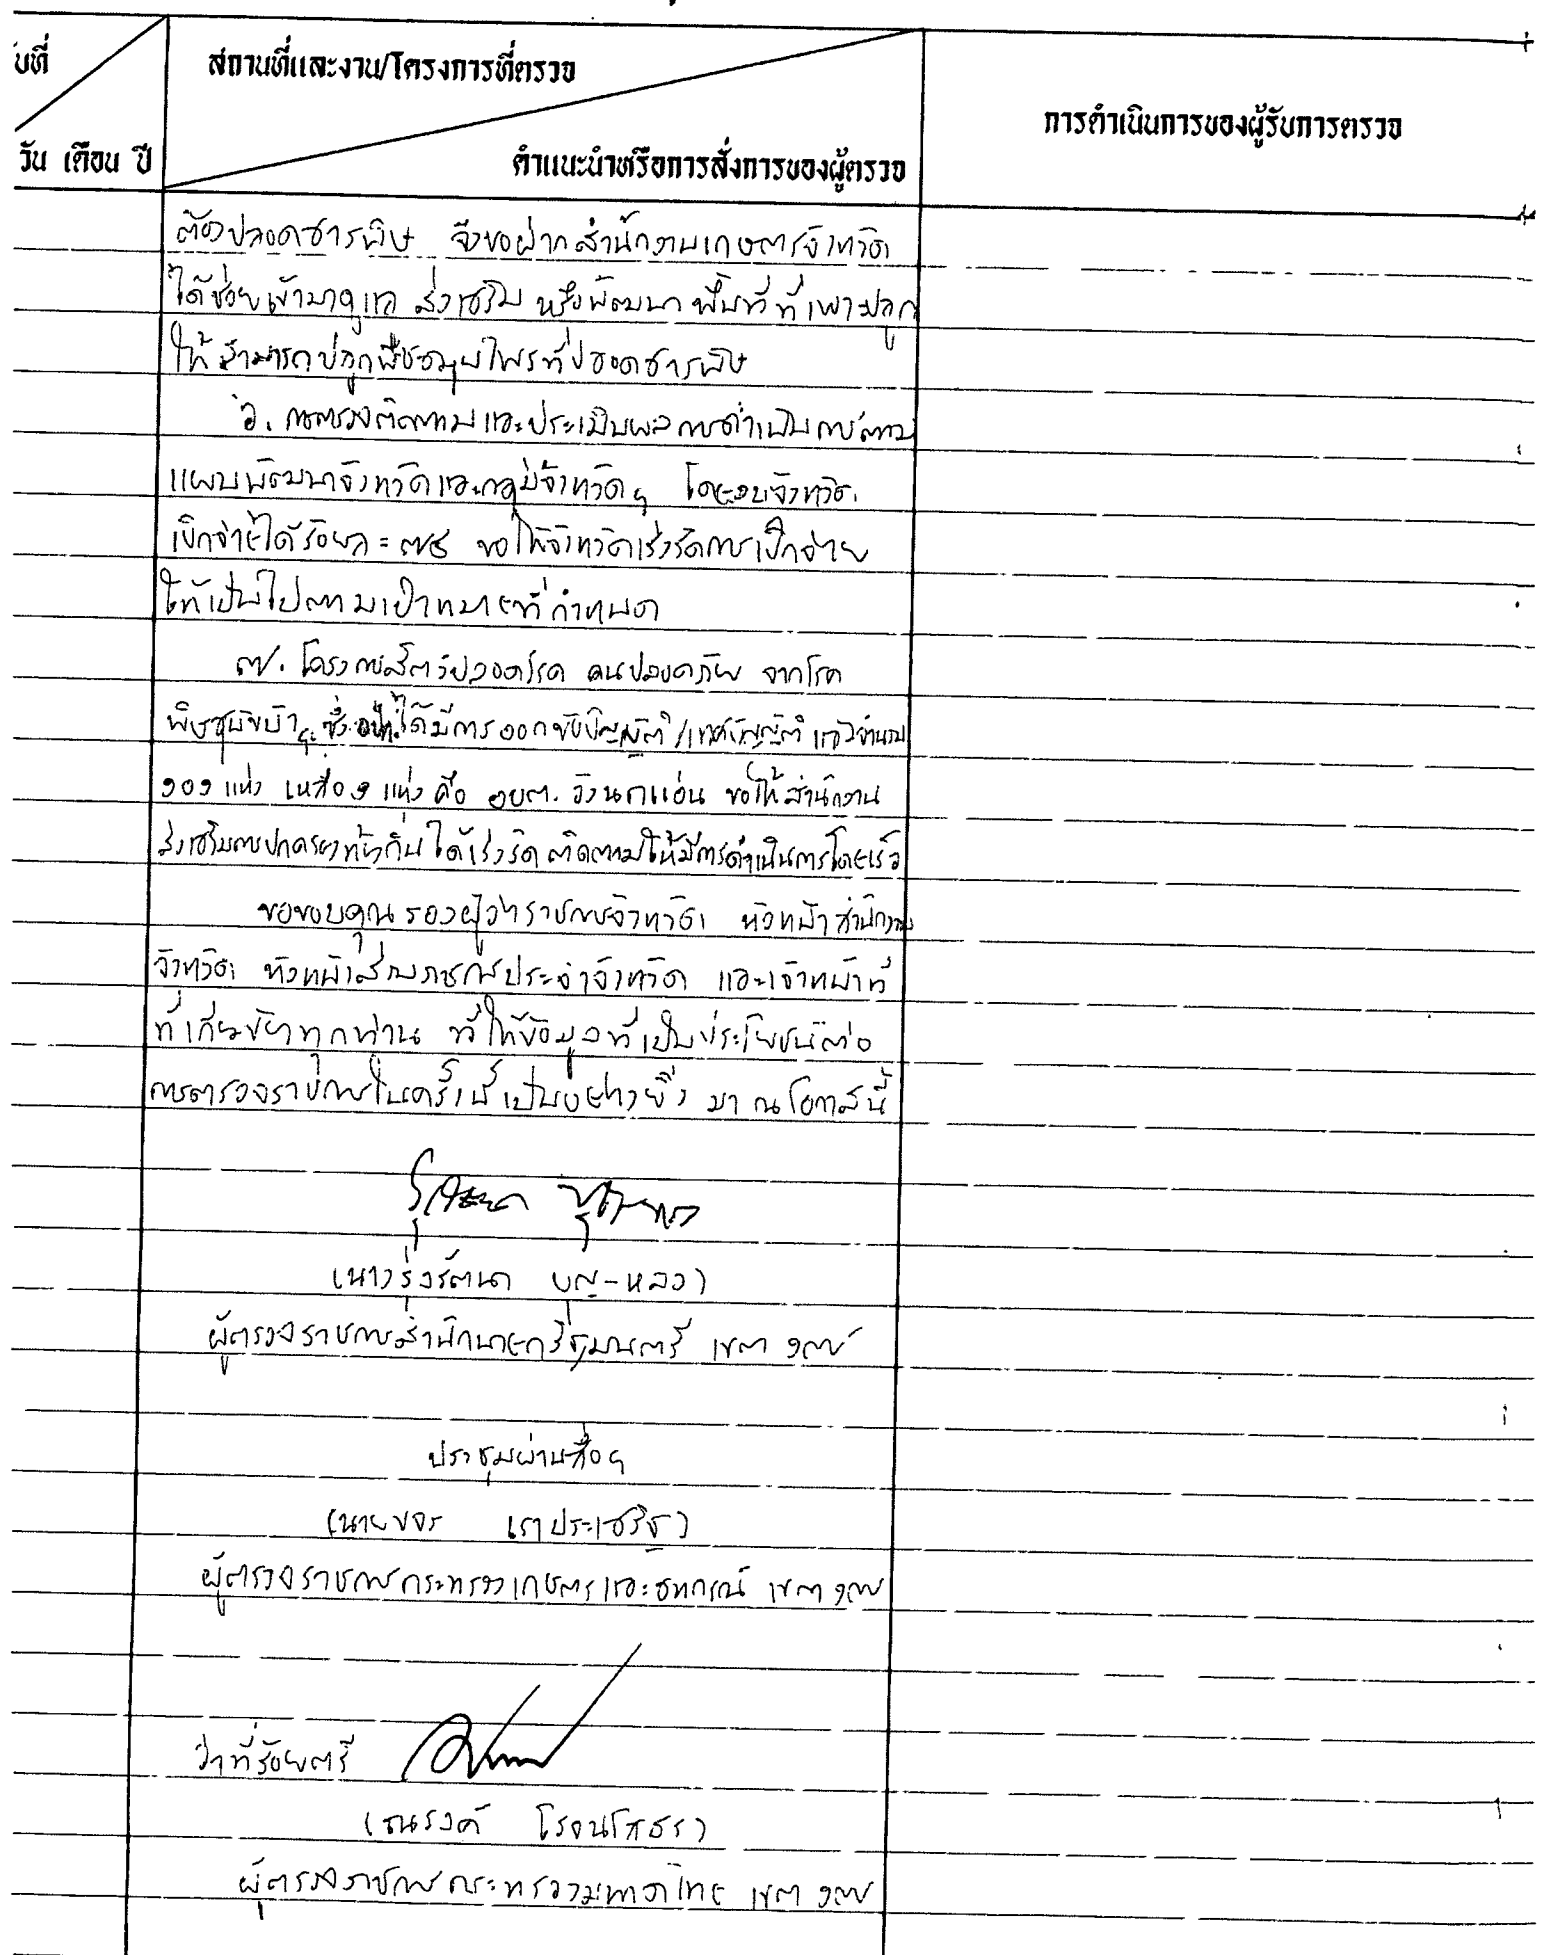 บที่
สถานที่และงาน/โครงการที่ตรวจ
วัน เดือน ปี
คำแนะนำหรือการสั่งการของผู้ตรวจ
การดำเนินการของผู้รับการตรวจ
ต้องปลอดสารพิษ จึงขอฝากสำนักงานเกษตรจังหวัด
ได้ช่วยเข้ามาดูแล ส่งเสริม หรือพัฒนา พื้นที่ ที่เพาะปลูก
ให้สามารถปลูกพืชสมุนไพรที่ปลอดสารพิษ
๖. การตรวจติดตามและประเมินผลการดำเนินการตาม
แผนพัฒนาจังหวัดและกลุ่มจังหวัดฯ โดยงบจังหวัด
เบิกจ่ายได้ร้อยละ ๗๕ ขอให้จังหวัดเร่งรัดการเบิกจ่าย
ให้เป็นไปตามเป้าหมายที่กำหนด
๗. โครงการสัตว์ปลอดโรค คนปลอดภัย จากโรค
พิษสุนัขบ้าฯ ซึ่ง อปท. ได้มีการออกข้อบัญญัติ/เทศบัญญัติ แล้วจำนวน
๑๐๑ แห่ง เหลือ ๑ แห่ง คือ อบต. วังนกแอ่น ขอให้สำนักงาน
ส่งเสริมการปกครองท้องถิ่น ได้เร่งรัด ติดตามให้มีการดำเนินการโดยเร็ว
ขอขอบคุณ รองผู้ว่าราชการจังหวัด หัวหน้าสำนักงาน
จังหวัด หัวหน้าส่วนราชการประจำจังหวัด และเจ้าหน้าที่
ที่เกี่ยวข้องทุกท่าน ที่ให้ข้อมูลที่เป็นประโยชน์ต่อ
การตรวจราชการในครั้งนี้เป็นอย่างยิ่ง มา ณ โอกาสนี้
(นางรุ่งรัตนา บุญ-หลง)
ผู้ตรวจราชการสำนักนายกรัฐมนตรี เขต ๑๗
ประชุมผ่านสื่อฯ
(นายขจร เราประเสริฐ)
ผู้ตรวจราชการกระทรวงเกษตรและสหกรณ์ เขต ๑๗
ว่าที่ร้อยตรี
(ณรงค์ โรจนโสธร)
ผู้ตรวจราชการกระทรวงมหาดไทย เขต ๑๗